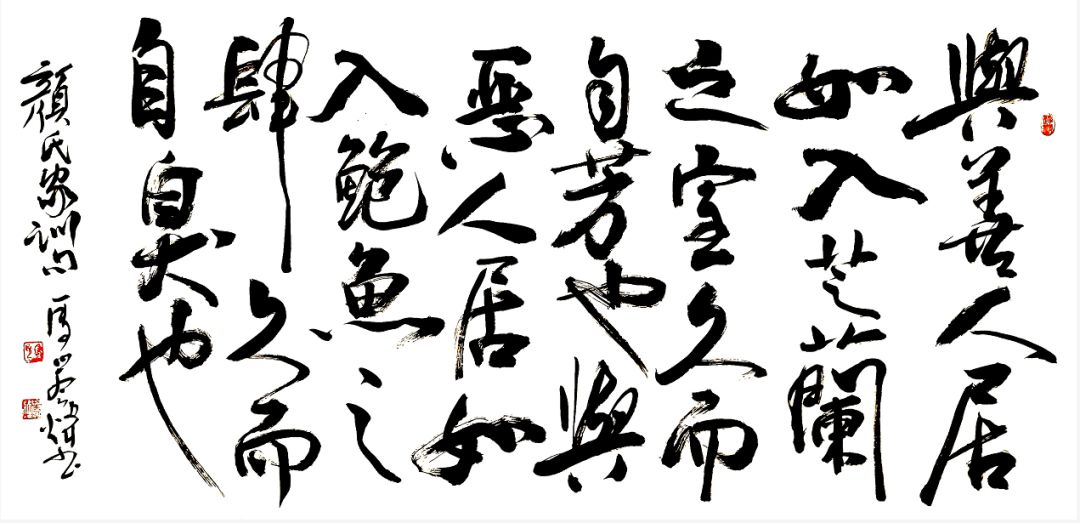 與善人居
如入芝蘭
之室久而
自芳也與
惡人居如
入鮑魚之
肆久而
自臭也
顏氏家訓句